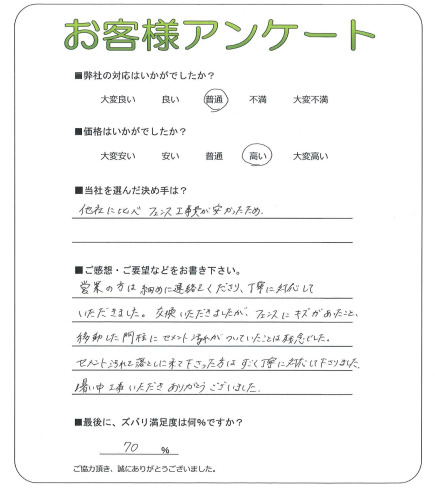 お客様アンケート
■弊社の対応はいかがでしたか?
大変良い 良い 普通 不満 大変不満
■価格はいかがでしたか?
大変安い 安い 普通 高い 大変高い
■当社を選んだ決め手は?
他社に比べ フェンス工事費が安かったため.
■ご感想・ご要望などをお書き下さい。
営業の方は細めに連絡をくださり、丁寧に対応して
いただきました。交換いただきましたが、フェンスにキズがあったこと、
移動した門柱にセメント汚れがついていたことは残念でした。
セメント汚れを落としに来て下さった方は すごく丁寧に対応して下さりました.
暑い中工事いただき ありがとうございました.
■最後に、ズバリ満足度は何%ですか?
70 %
ご協力頂き、誠にありがとうございました。